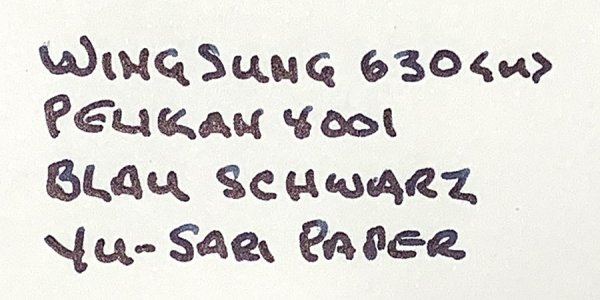 WING SUNG 630 <M>
PELIKAN 4001
BLAU SCHWARZ
YU-SARI PAPER